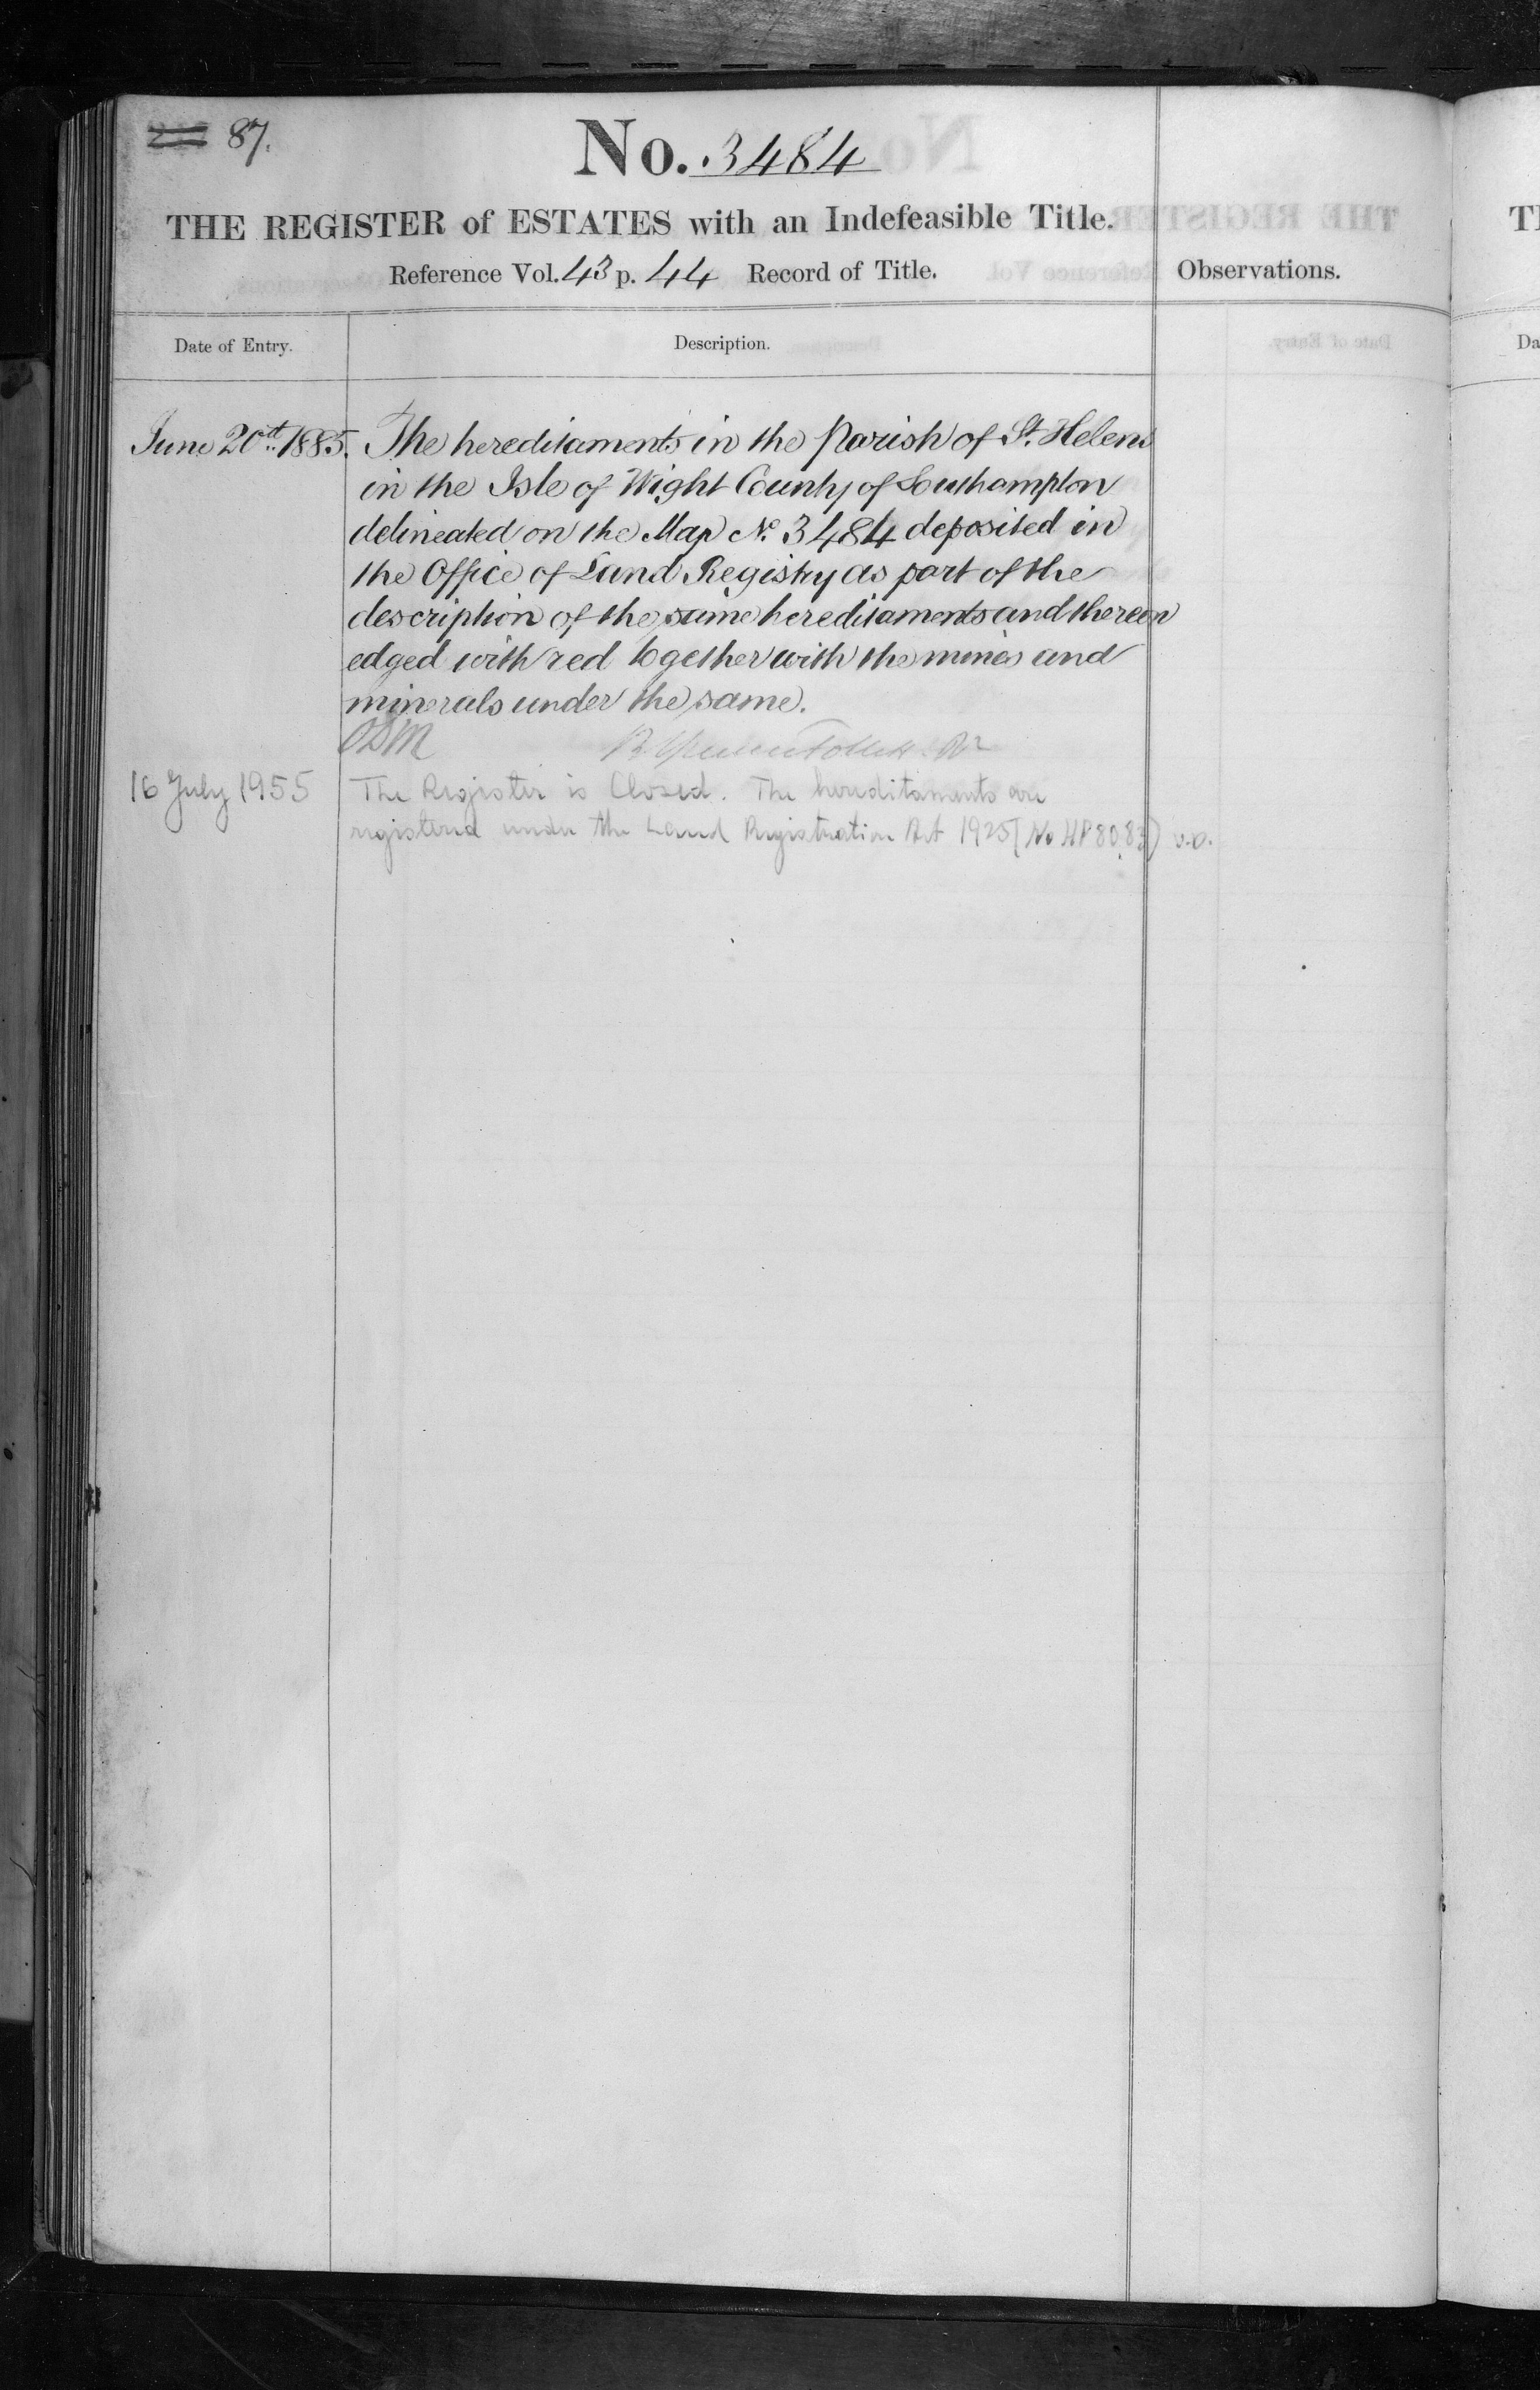 87.
No. 3484
THE REGISTER of ESTATES with an Indefeasible Title.
Reference Vol. 43 p. 44 Record of Title.
Observations.
Date of Entry.
Description.
June 20th 1885. The hereditaments in the Parish of St. Helens
in the Isle of Wight County of Southampton
delineated on the Map No. 3484 deposited in
the Office of Land Registry as part of the
description of the same hereditaments and thereon
edged with red together with the mines and
minerals under the same.
16 July 1955 The Register is Closed. The hereditaments are
registered under the Land Registration Act 1925 (No HP 8083)